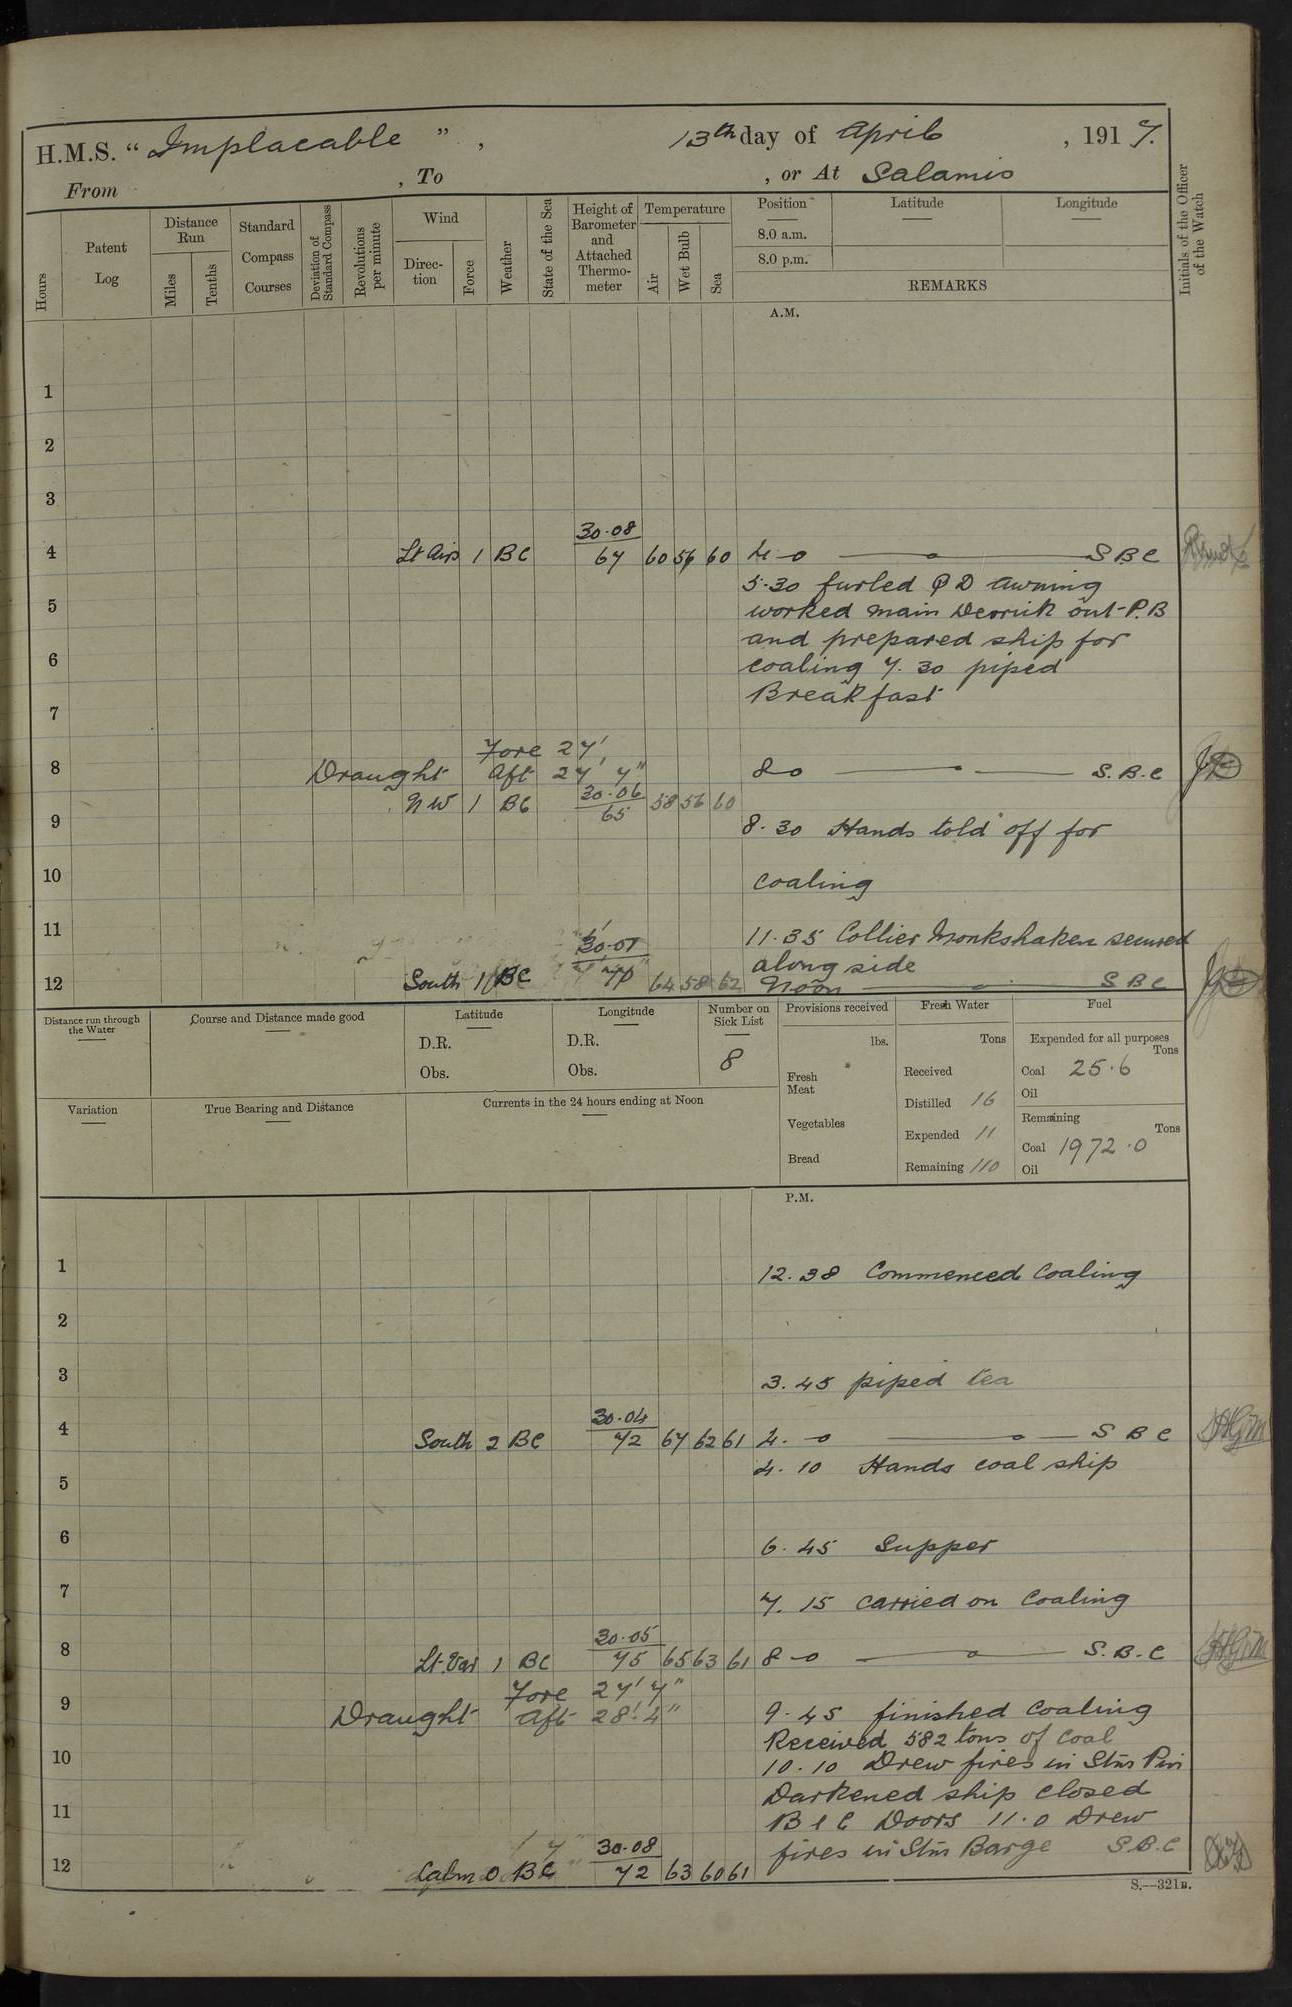 H.M.S. “ Implacable ” , 13th day of April , 1917.
From , To , or At Salamis
Hours
Patent Log
Distance Run
Miles
Tenths
Standard Compass Courses
Deviation of Standard Compass
Revolutions per minute
Wind
Direction
Force
Weather
State of the Sea
Height of Barometer and Attached Thermometer
Temperature
Air
Wet Bulb
Sea
Position
Latitude
Longitude
8.0 a.m.
8.0 p.m.
REMARKS
Initials of the Officer of the Watch
A.M.
1
2
3
30.08
4 Lt Airs 1 BC 67 60 56 60 4-0 S B C
5.30 furled Q D awning
5 worked main Derrick out P.B
and prepared ship for
6 coaling 7.30 piped
Breakfast
7
Fore 27'
8 Draught Aft 27' 7" 8-0 S.B.C
NW 1 BC 30.06 65 58 56 60
9 8.30 Hands told off for
10 coaling
11 11.35 Collier Monkshaven secured
30.07
along side
12 South 1 BC 70 64 58 62 Noon S B C
Distance run through the Water
Course and Distance made good
Latitude
D.R.
Obs.
Longitude
D.R.
Obs.
Number on Sick List
8
Provisions received
lbs.
Fresh Meat
Vegetables
Bread
Fresh Water
Tons
Received
Distilled 16
Expended 11
Remaining 110
Fuel
Expended for all purposes
Tons
Coal 25.6
Oil
Remaining
Tons
Coal 1972.0
Oil
Variation
True Bearing and Distance
Currents in the 24 hours ending at Noon
P.M.
1 12.38 Commenced Coaling
2
3 3.45 piped tea
30.04
4 South 2 BC 72 67 62 61 4.-0 S B C
4.10 Hands coal ship
5
6 6.45 Supper
7 7.15 carried on Coaling
30.05
8 Lt Var 1 BC 75 65 63 61 8-0 S.B.C
Fore 27' 7"
9 Draught Aft 28' 4" 9.45 finished Coaling
Received 582 tons of Coal
10 10.10 Drew fires in Stm Pin
Darkened ship closed
11 B & C Doors 11.0 Drew
30.08
fires in Stm Barge S.B.C
12 Calm 0 BC 72 63 60 61
S.—321B.